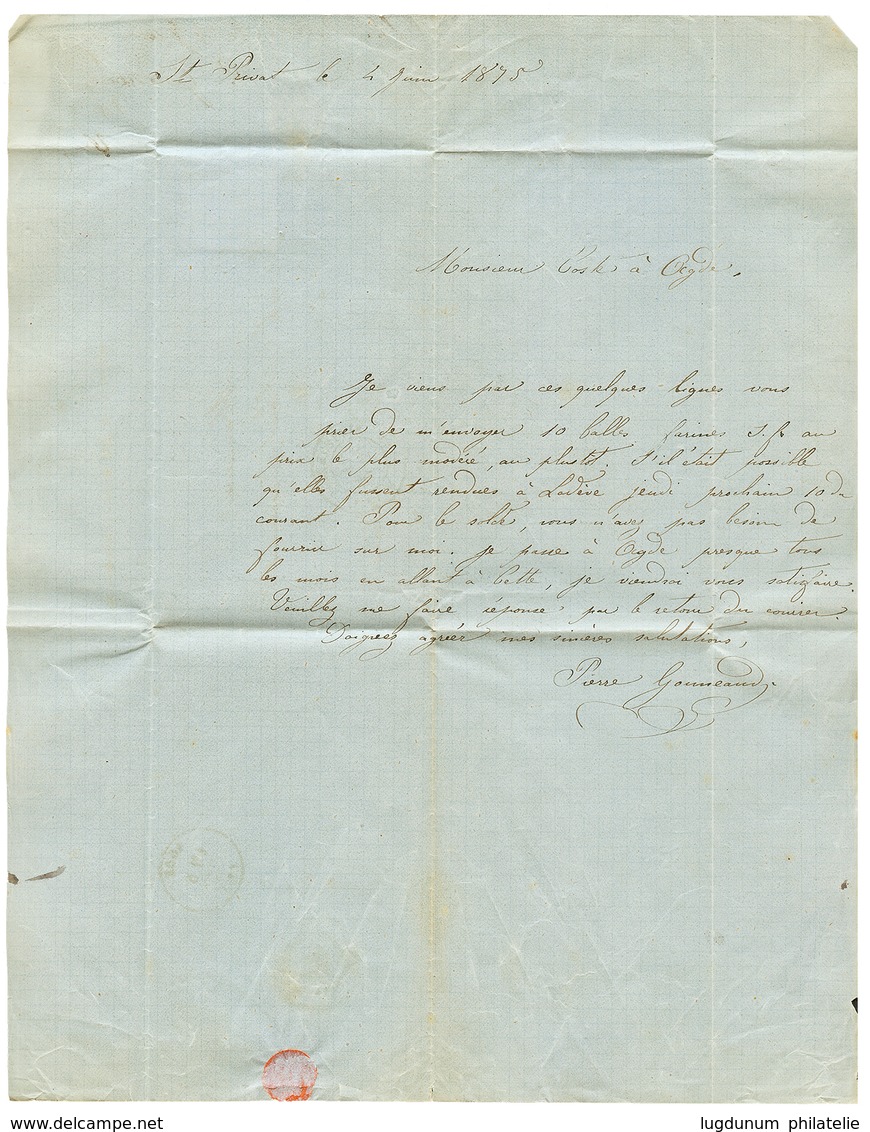 St Privat le 4 Juin 1875
Monsieur Coste à Agde,
Je viens par ces quelques lignes vous
prier de m'envoyer 10 balles farines S.f. au
prix le plus modéré, au plustôt. S'il était possible
qu'elles fussent rendues à Lodève jeudi prochain 10 du
courant. Pour le solde, vous n'avez pas besoin de
fournir sur moi. je passe à Agde presque tous
les mois en allant à Cette, je viendrai vous satisfaire.
Veuillez me faire réponse par le retour du courier.
Daignez agréer mes sincères salutations,
Pierre Gouneaud
www.delcampe.net
lugdunum philatelie